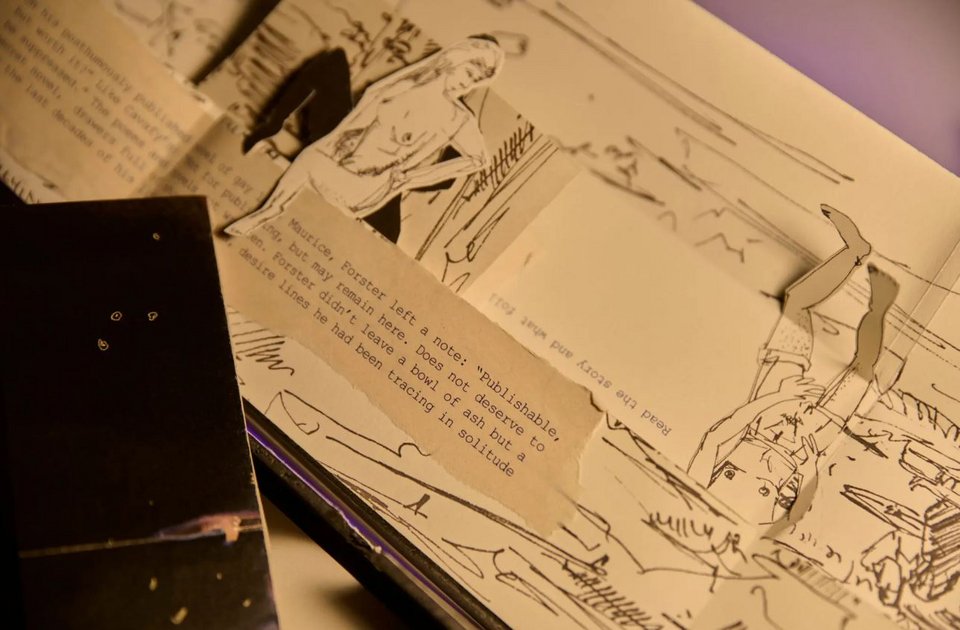 posthumously published
but worth it?" Like
be suppressed. The
novel, drawers full
the last decades of his
of gay
for
Maurice, Forster left a note: “Publishable,
but may remain here. Does not deserve to
Forster didn't leave a bowl of ash but a
desire lines he had been tracing in solitude
Read the story and what foll